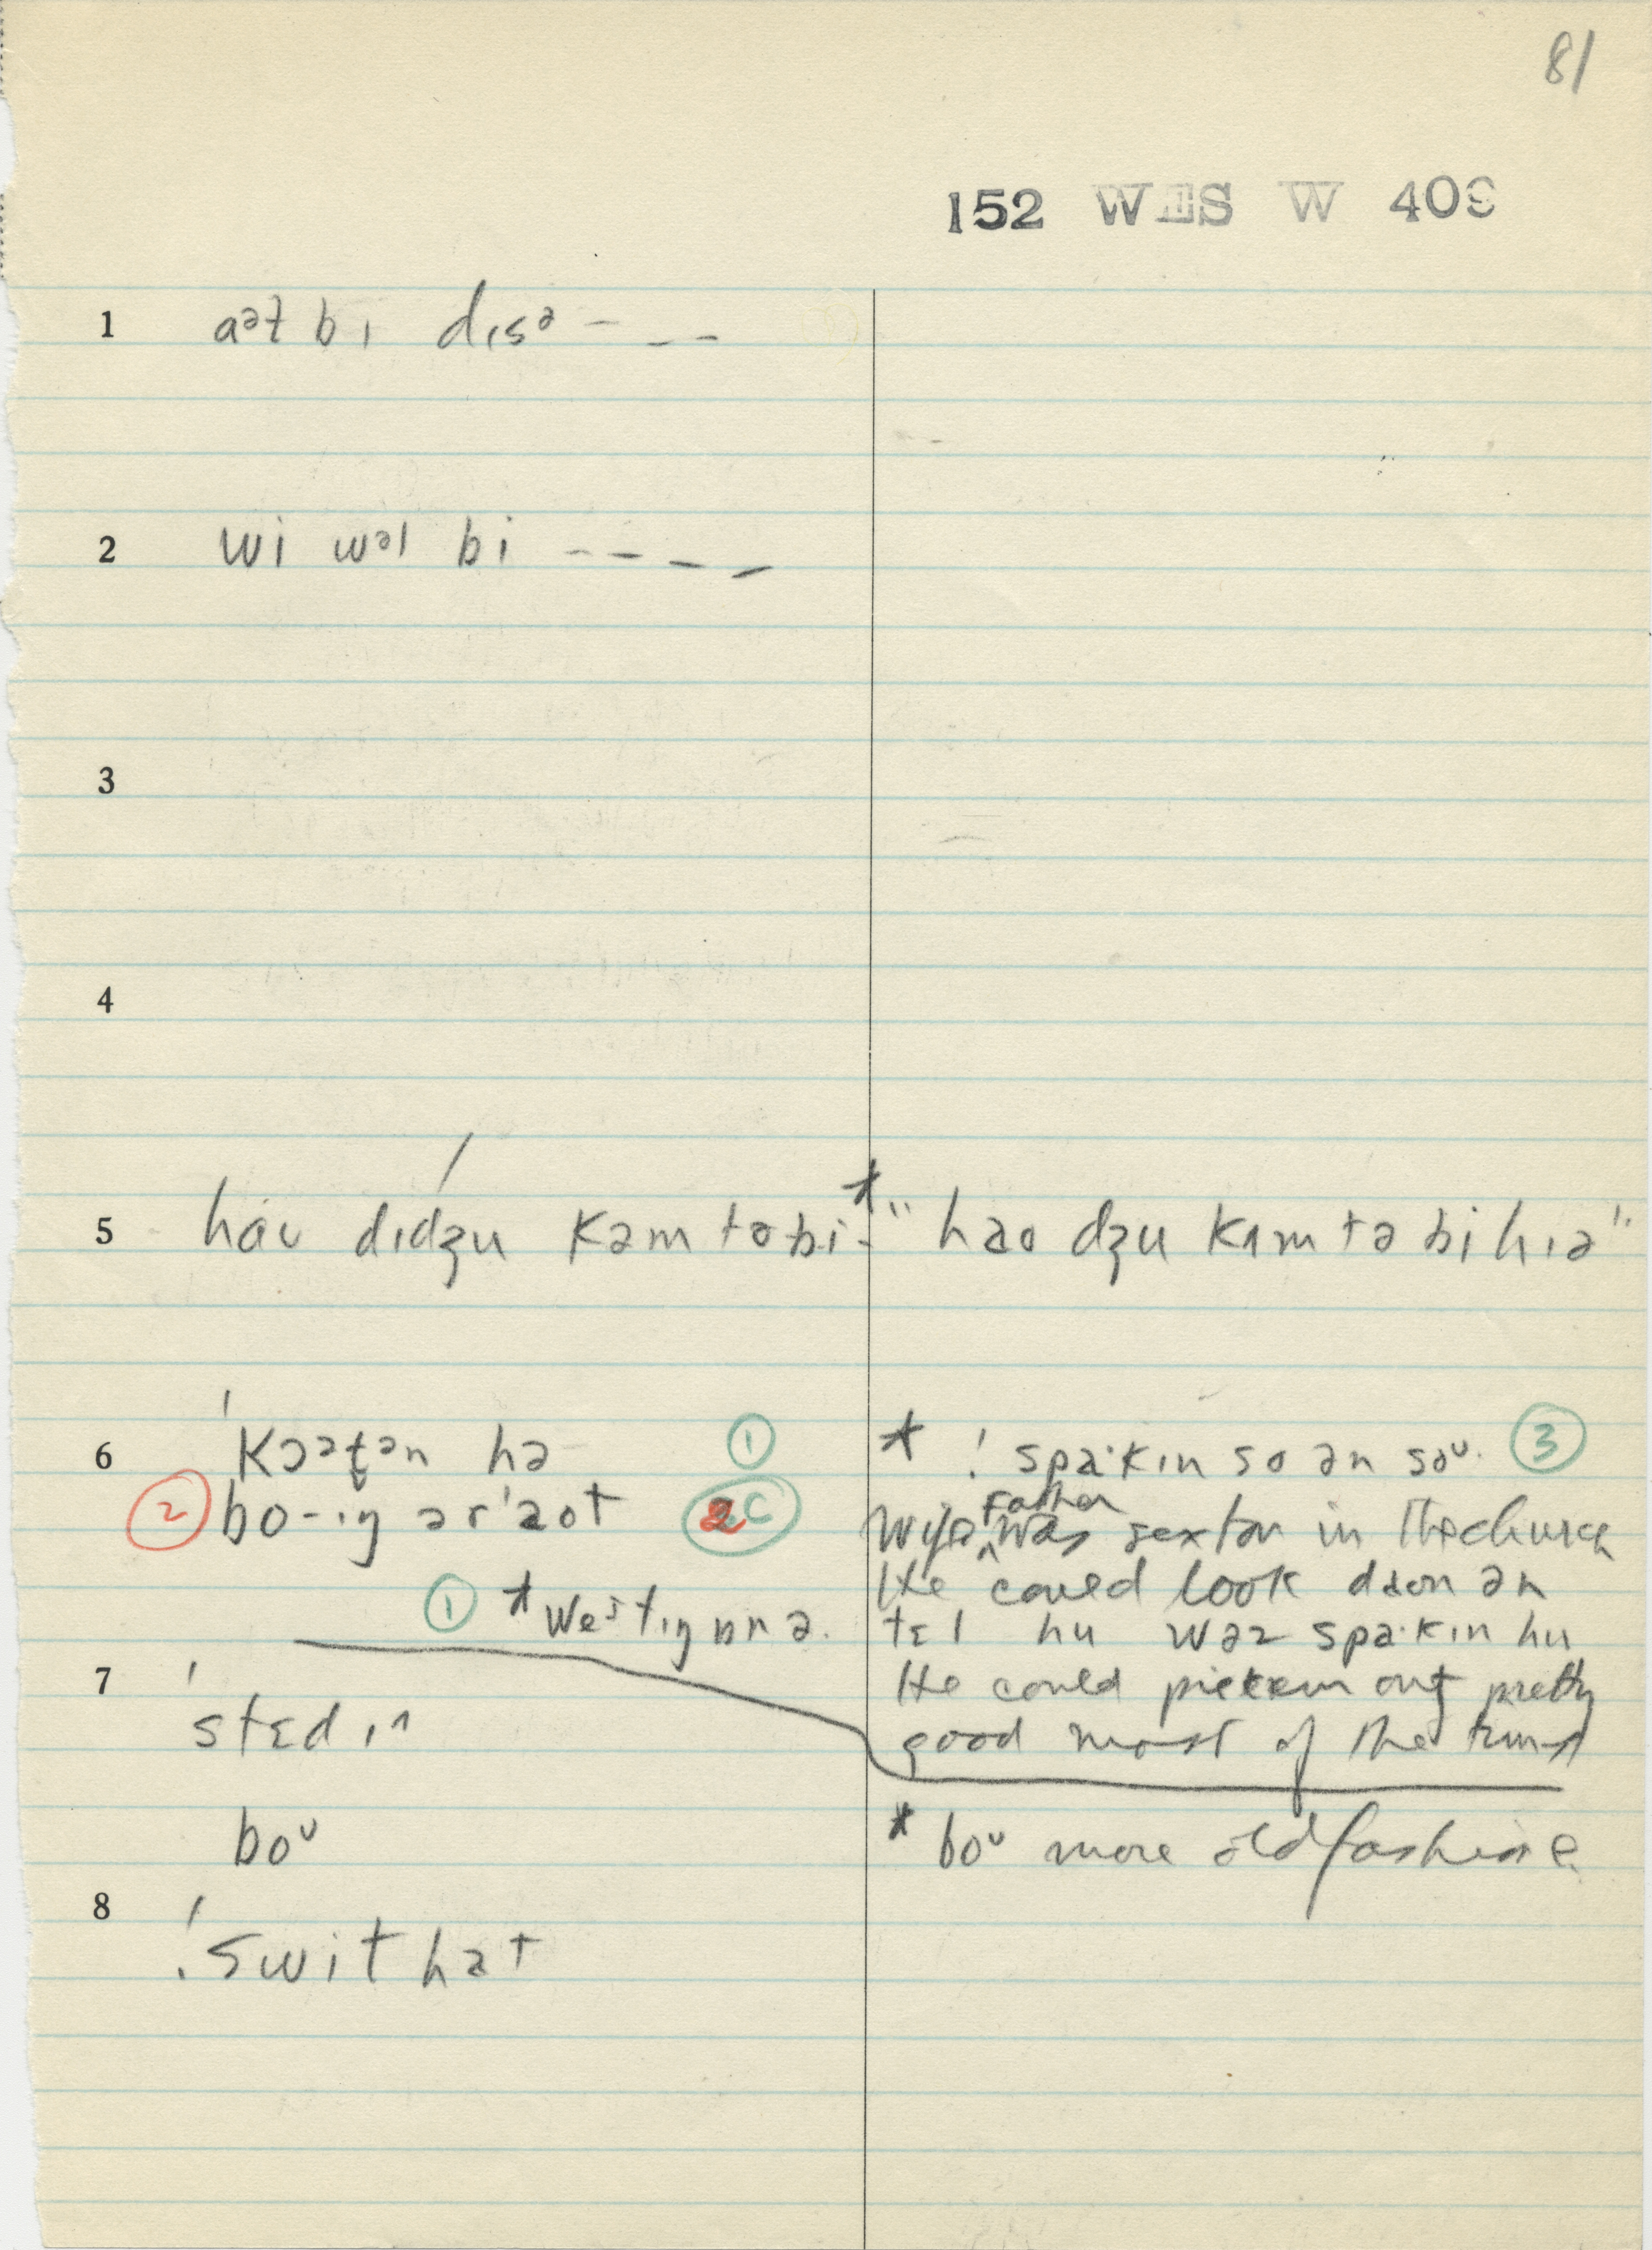 81
152 WES W 409
1 aᵊt bɪ dɪsᵊ – – –
2 wi wəl bi – – – –
3
4
5 haʊ dɪdʒu kəm tə bi- * "hao dʒu kʌm tə bi hɪə"
6 'kɔətən hə ①
* ! spa·kɪn so ən soᵘ. ③
② bo-ɪŋ ər'aot 2C
father
wife ^ was sexton in the church
① * Westɪŋ
He could look daon ən
tɛl hu waz spa·kɪn hu
7 'stɛdɪn
He could pick em out pretty
good most of the time
boᵘ
* boᵘ more old fashione
8 '. swithat